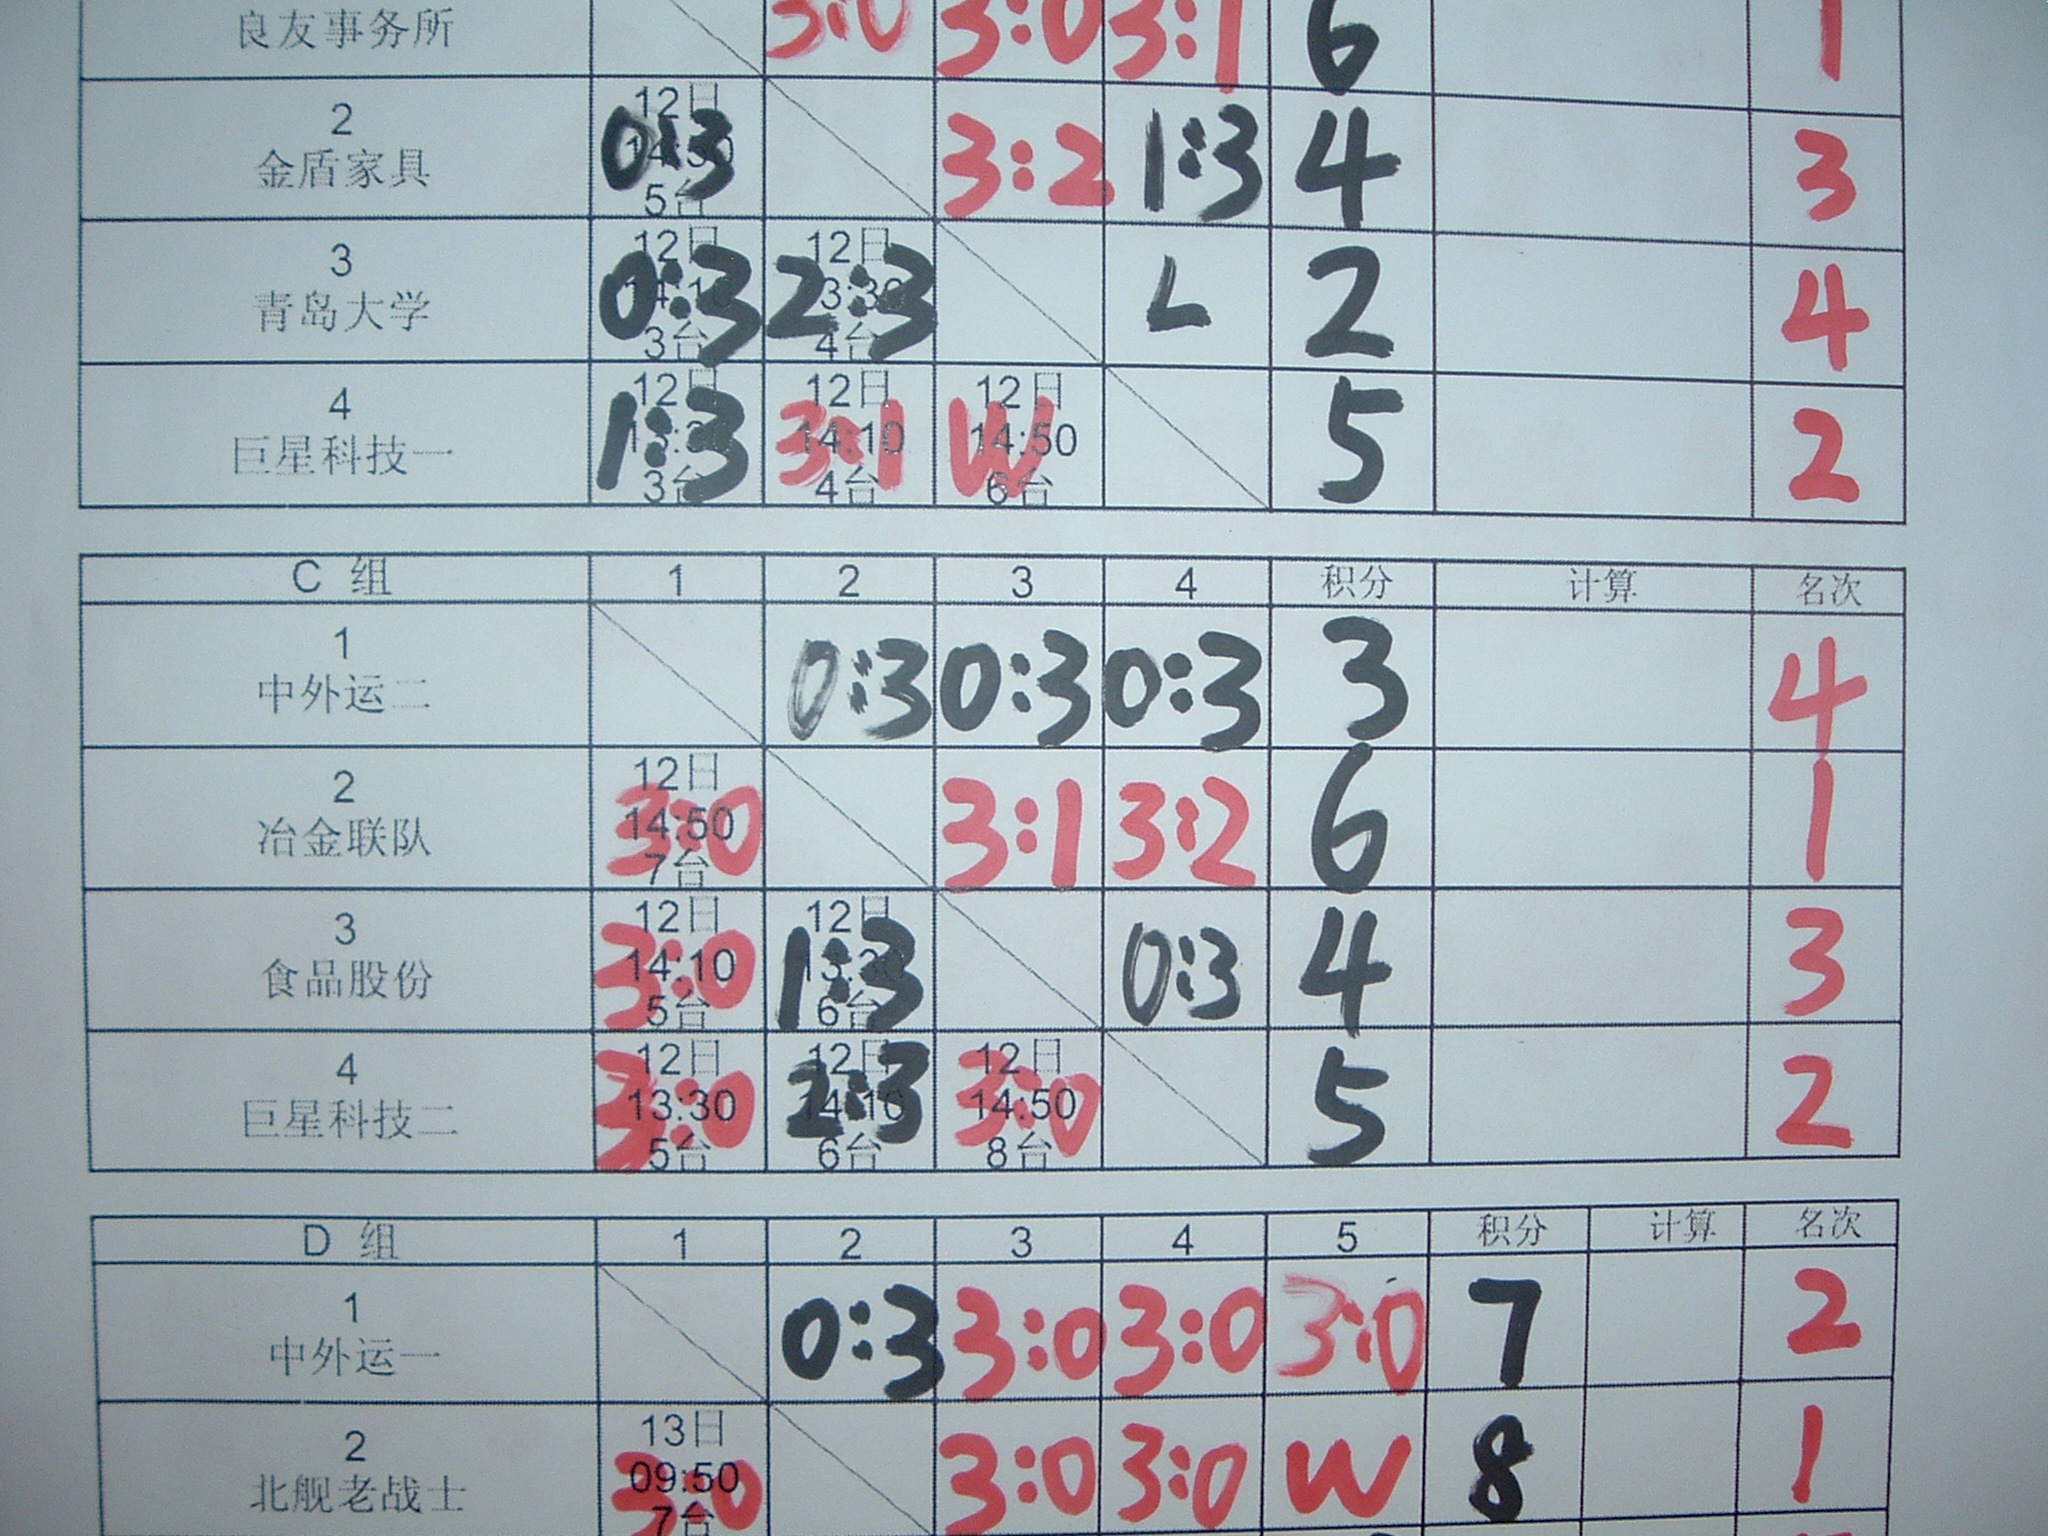 良友事务所 3:0 3:0 3:1 6 1
2 12日
金盾家具 0:3 3:2 1:3 4 3
5台
3 12日 12日
青岛大学 0:3 2:3 L 2 4
3台 4台
4 12日 12日 12日
巨星科技一 1:3 14:10 3:1 14:50 W 5 2
3台 4台 6台
C 组 1 2 3 4 积分 计算 名次
1
中外运二 0:3 0:3 0:3 3 4
2 12日
冶金联队 14:50 3:0 3:1 3:2 6 1
7台
3 12日 12日
食品股份 14:10 3:0 1:3 0:3 4 3
5台 6台
4 12日 12日 12日
巨星科技二 13:30 3:0 14:10 2:3 14:50 3:0 5 2
5台 6台 8台
D 组 1 2 3 4 5 积分 计算 名次
1
中外运一 0:3 3:0 3:0 3:0 7 2
2 13日
北舰老战士 09:50 3:0 3:0 3:0 W 8 1
7台